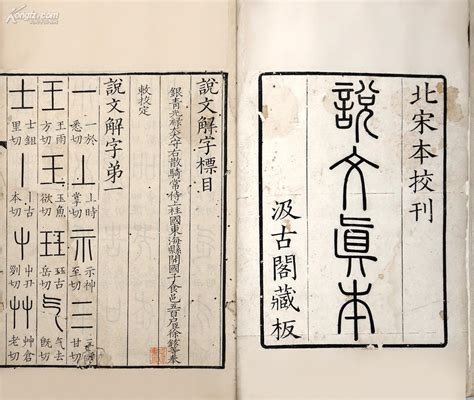 Kongfz.com
北宋本校刊
說文眞本
汲古閣藏板
說文解字標目
銀青光祿大夫守右散騎常侍上柱國東海縣開國子食邑五百戶臣徐鉉等奉
敕校定
說文解字弟一
一 一於悉切 丄 上時掌切 示 示神 三 甘切
王 王雨方切 王 玉魚欲切 玨 玨古岳切 气 气去切
士 士鉏里切 丨 丨古本切 屮 屮丑切 艸 艸倉老切